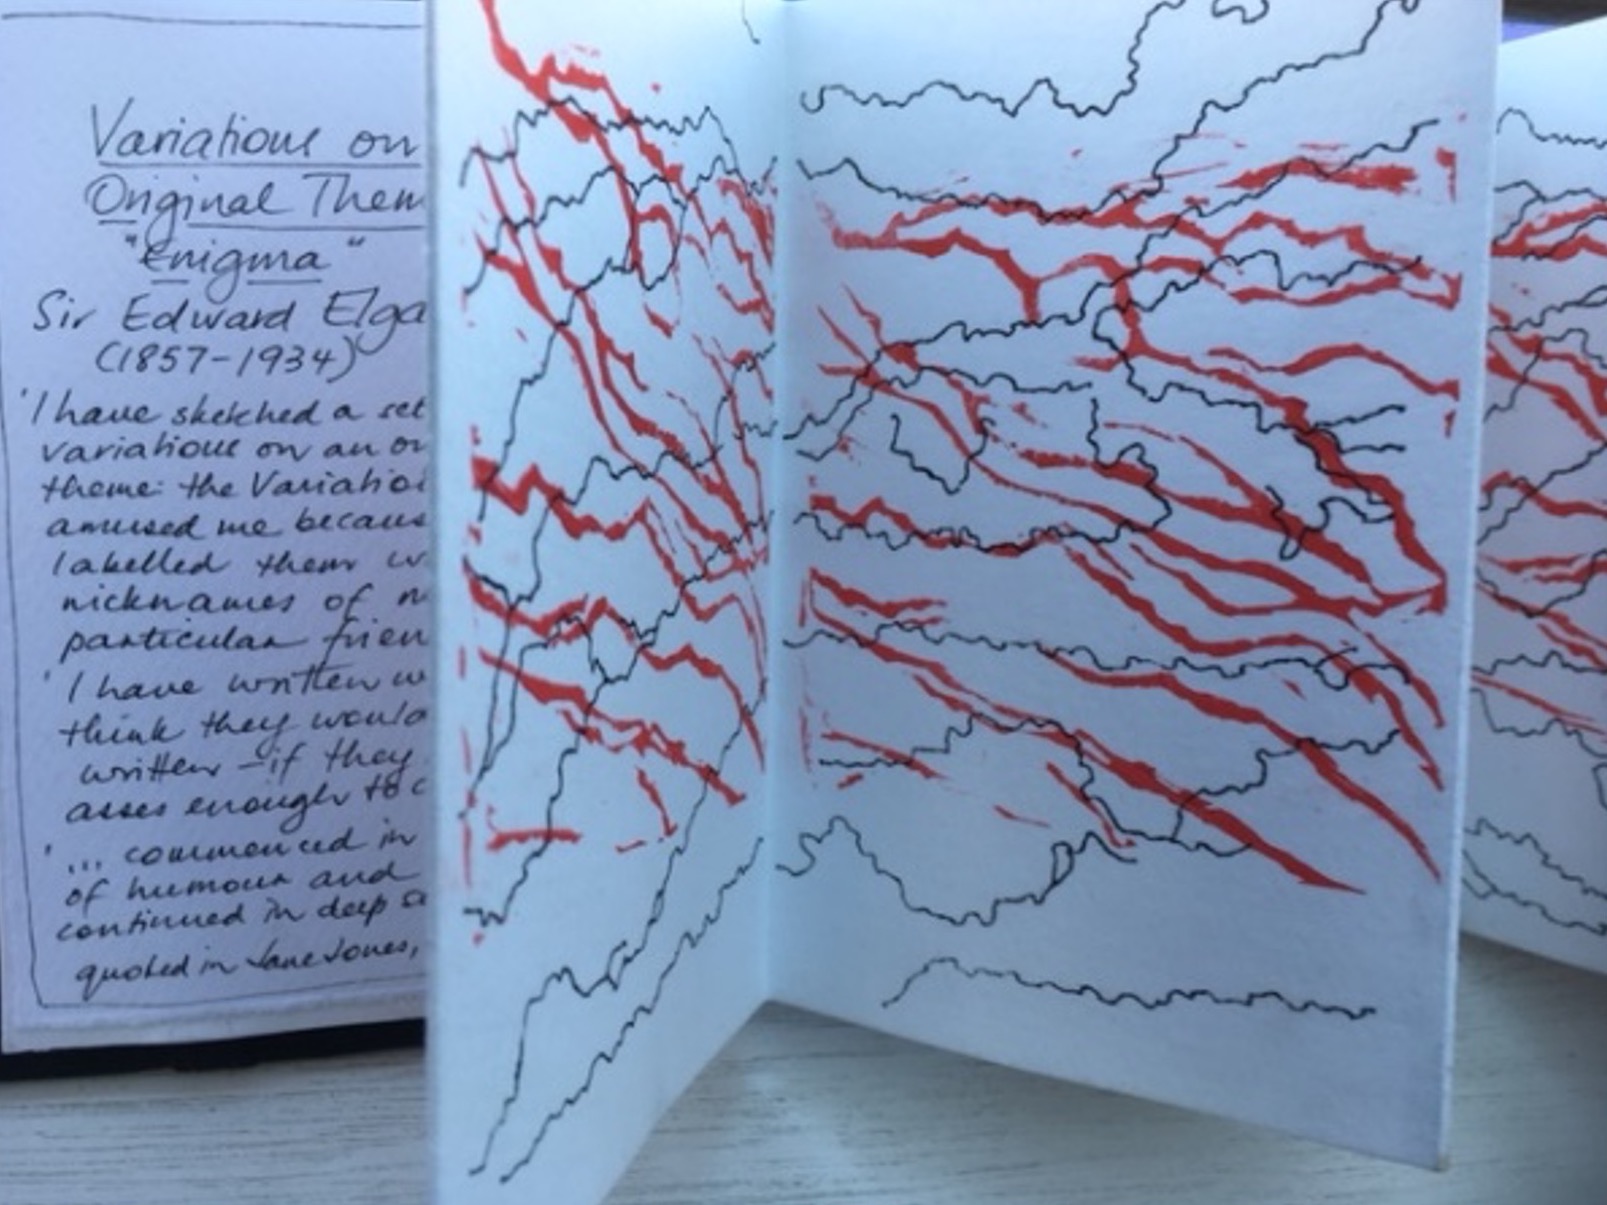 Variations on
Original Them
"Enigma"
Sir Edward Elga
(1857-1934)
'I have sketched a set
variations on an or
theme: the Variatio
amused me becaus
labelled them w
nicknames of m
particular frien
'I have written w
think they would
written - if they
asses enough to c
'... commenced in
of humour and
continued in deep se
quoted in Jane Jones,